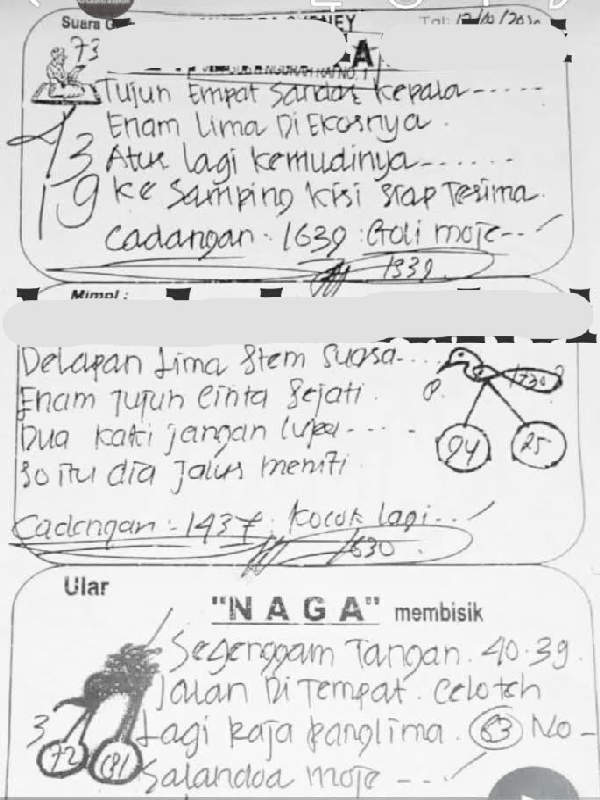 Suara
SIDNEY
Tgl: 12/10/20
73
A
Tujuh Empat Sandar Kepala-----
Enam Lima Di Ekornya.
73 Atur lagi kemudinya-------
19 Ke Samping Kisi Siap Terima.
Cadangan. 1639: Goli moje--
1939.
Mimpi :
Delapan Lima Stem Suasa....
Enam Tujuh Cinta Sejati.
Dua kaki jangan lupa----
So itu dia Jalur meniti
P.
1730
94 25
Cadangan - 1437: kocok lagi..
1630.
Ular
"N A G A" membisik
Segenggam Tangan. 40.39.
Jalan Di Tempat. Celoteh
Lagi Raja Panglima. 83 No-
Salandoa moje ---
3
72